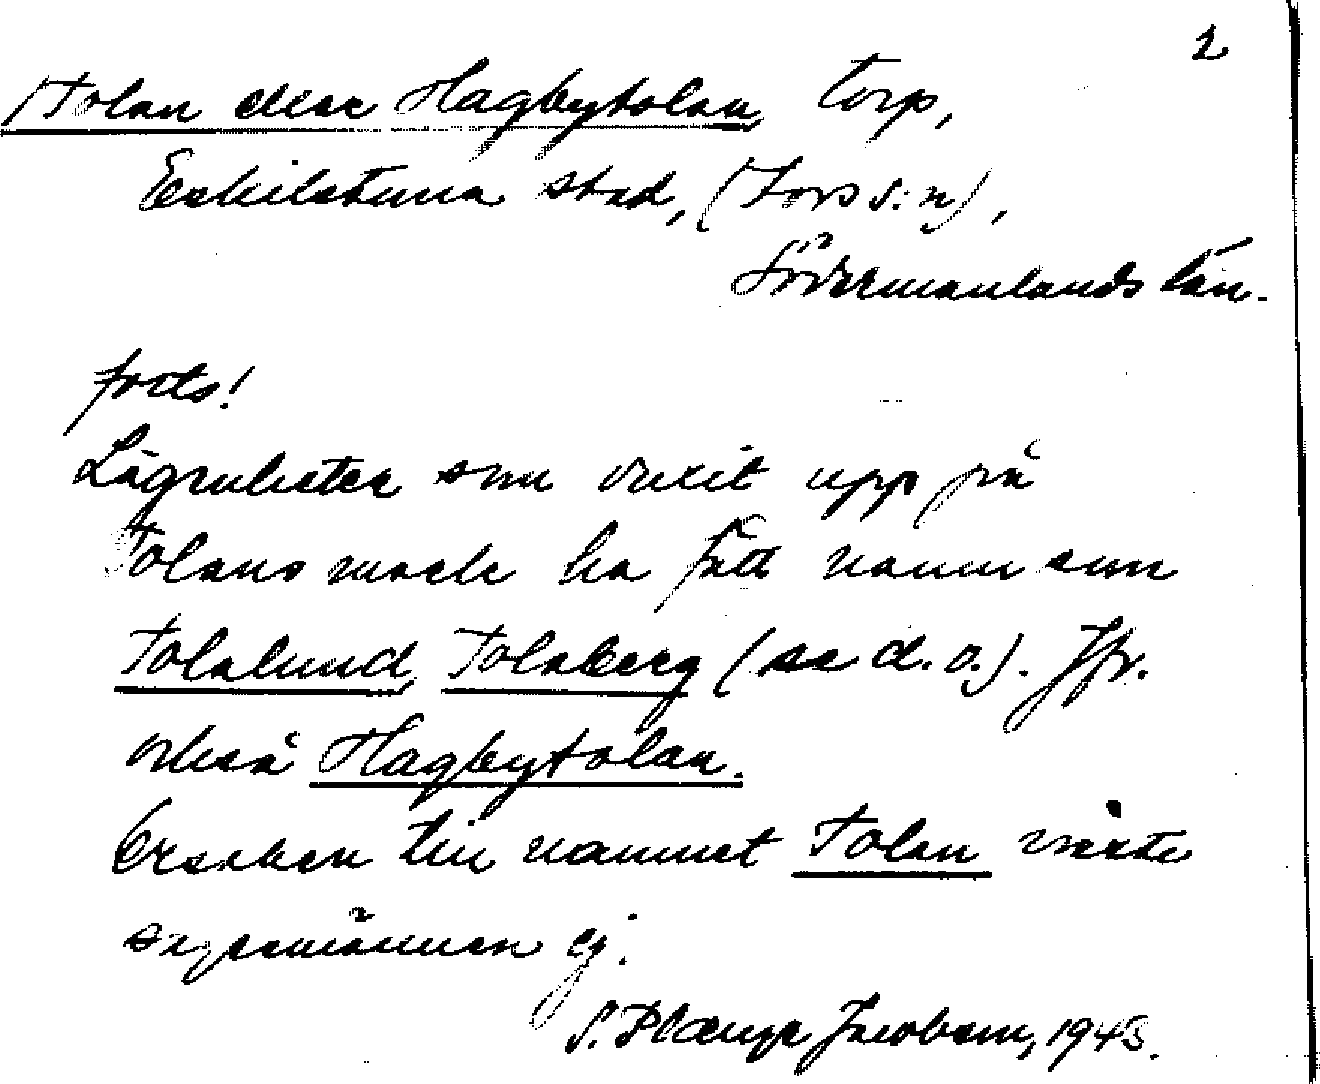 2
Tolan eller Hagbytolan, torp,
Eskilstuna stad, (Fors s:n),
Södermanlands län.
forts!
Lägenheter som vuxit upp på
Tolans mark ha fått namn som
Tolalund, Tolaberg (se d. o.). Jfr.
också Hagbytolan.
Orsaken till namnet Tolan visste
sagesmännen ej.
S. Plænge Jacobson, 1943.